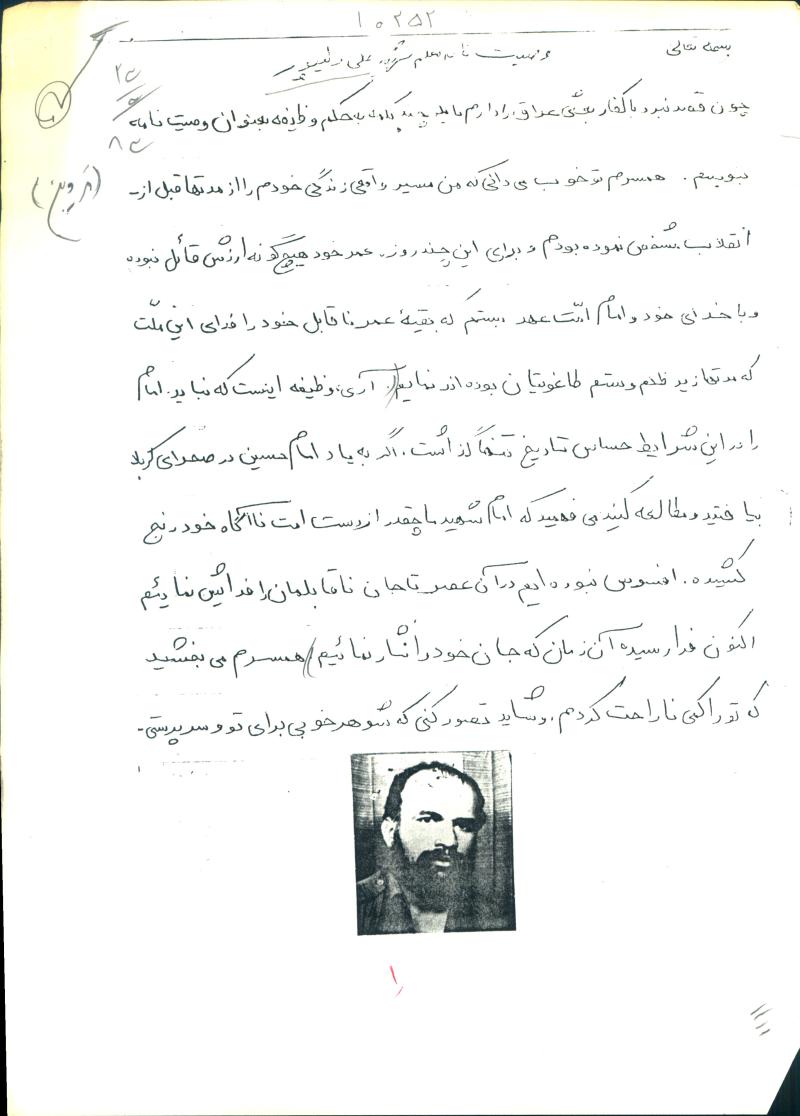 ۱۰۲۵۲
بسمه تعالی
وصیت نامه معلم شهید علی
(قزوین)
چون قصد نبرد با کفار بعثی عراق را دارم مایلم چند کلمه به حکم وظیفه بعنوان وصیت نامه
بنویسم. همسرم تو خوب می دانی که من مسیر واقعی زندگی خودم را از مدتها قبل از-
انقلاب مشخص نموده بودم و برای این چند روز عمر خود هیچ گونه ارزش قائل نبوده
و با خدای خود و امام امت عهد بستم که بقیهٔ عمر ناقابل خود را فدای این ملت
که مدتها زیر ظلم و ستم طاغوتیان بوده اند نمایم. آری وظیفه اینست که نباید امام
را در این شرایط حساس تاریخ تنها گذاشت. اگر به یاد امام حسین در صحرای کربلا
بیافتید و مطالعه کنید می فهمید که امام شهید ما چقدر از دست امت ناآگاه خود رنج
کشیده. افسوس نبوده ایم در آن عصر تا جان ناقابلمان را فدایش نمائیم
اکنون فرا رسیده آن زمان که جان خود را نثار نمائیم همسرم می بخشید
که تو را کمی ناراحت کردم. و شاید تصور کنی که شوهر خوبی برای تو و سرپرستی-
۱